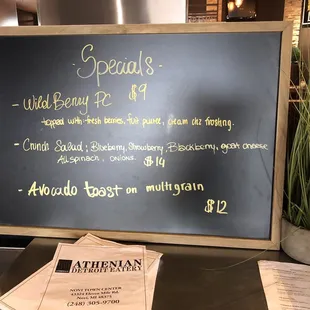 -Specials-
- Wild Berry PC $9
topped with fresh berries, fruit puree, cream chz frosting.
- Crunch Salad: Blueberry, Strawberry, Blackberry, goat cheese
All spinach, onions. $14
- Avocado toast on multigrain
$12
ATHENIAN
DETROIT EATERY
NOVI TOWN CENTER
Novi, MI 48375
(248) 305-9700